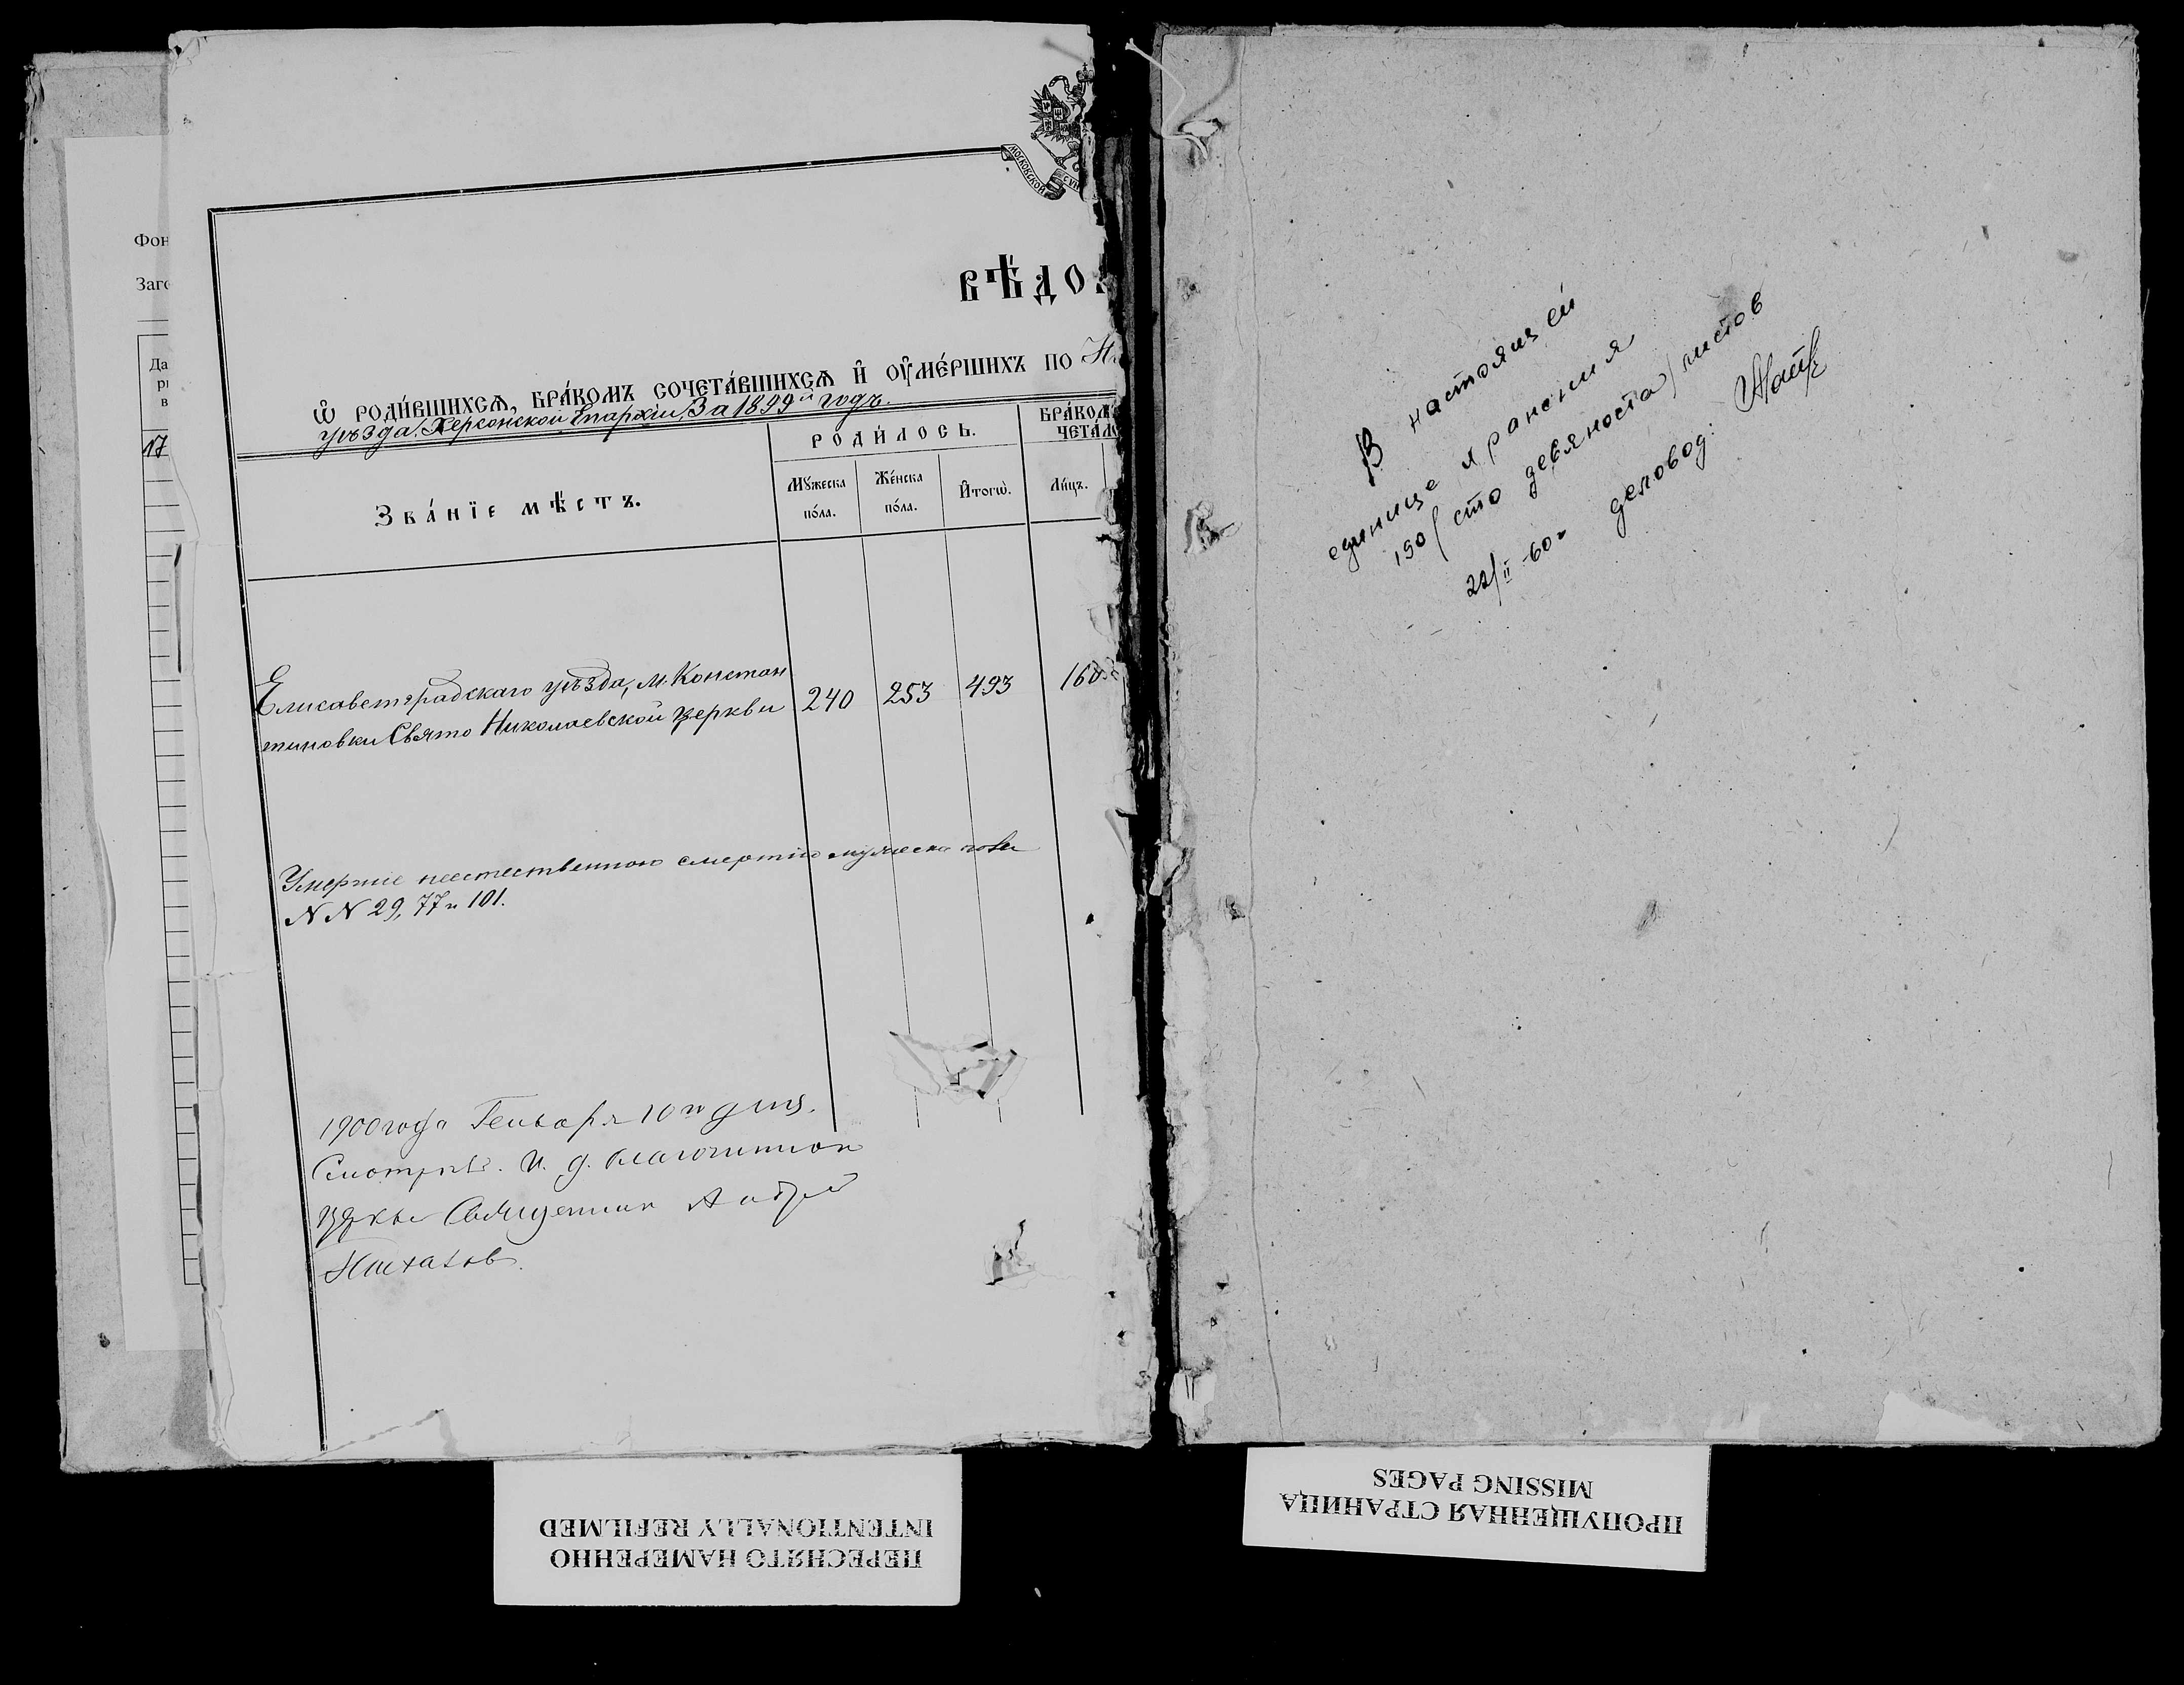 Фон
Заго
Да
17
МОСКОВСКОЙ
ВѢДО
Ѿ РОДИ́ВШИХСѦ, БРА́КОМЪ СОЧЕТА́ВШИХСѦ И҆ ОУ҆МЕ́РШИХЪ ПО Н
уѣзда, Херсонской Епархіи, За 1899й годъ.
Зва́нїе мѣ́стъ.
РОДИ́ЛОСЬ.
Мꙋ́жеска по́ла.
Же́нска по́ла.
И҆тогѡ̀.
БРА́КОМ
ЧЕТА́ЛО
Ли́цъ.
Елисаветградскаго уѣзда, м. Констан
тиновки Свято Николаевской церкви
240
253
493
Умершіе неестественною смертію мужеска пола
N N 29, 77 и 101.
1900 года Генваря 10го дня.
Смотрѣлъ. И. д. благочиннаго
церкви Священник Андрей
В настоящей
единице хранения
190 (сто девяносто) листов
22/II-60г деловод:
ПЕРЕСНЯТО НАМЕРЕННО
INTENTIONALLY REFILMED
ПРОПУЩЕННАЯ СТРАНИЦА
MISSING PAGES